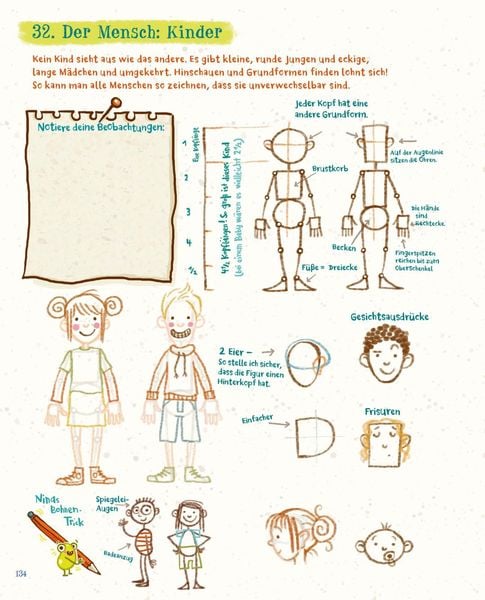 32. Der Mensch: Kinder
Kein Kind sieht aus wie das andere. Es gibt kleine, runde Jungen und eckige,
lange Mädchen und umgekehrt. Hinschauen und Grundformen finden lohnt sich!
So kann man alle Menschen so zeichnen, dass sie unverwechselbar sind.
Notiere deine Beobachtungen:
Jeder Kopf hat eine
andere Grundform.
1
2
3
4
1/2
Eine Kopflänge
4 1/2 Kopflängen! So groß ist dieses Kind
(bei einem Baby wären es vielleicht 2 1/2)
Brustkorb
Auf der Augenlinie
sitzen die Ohren.
Die Hände
sind
Rechtecke.
Becken
Fingerspitzen
reichen bis zum
Oberschenkel
Füße = Dreiecke
Gesichtsausdrücke
2 Eier –
So stelle ich sicher,
dass die Figur einen
Hinterkopf hat.
Einfacher
Frisuren
Ninas
Bohnen-
Trick
Spiegelei-
Augen
Badeanzug
134